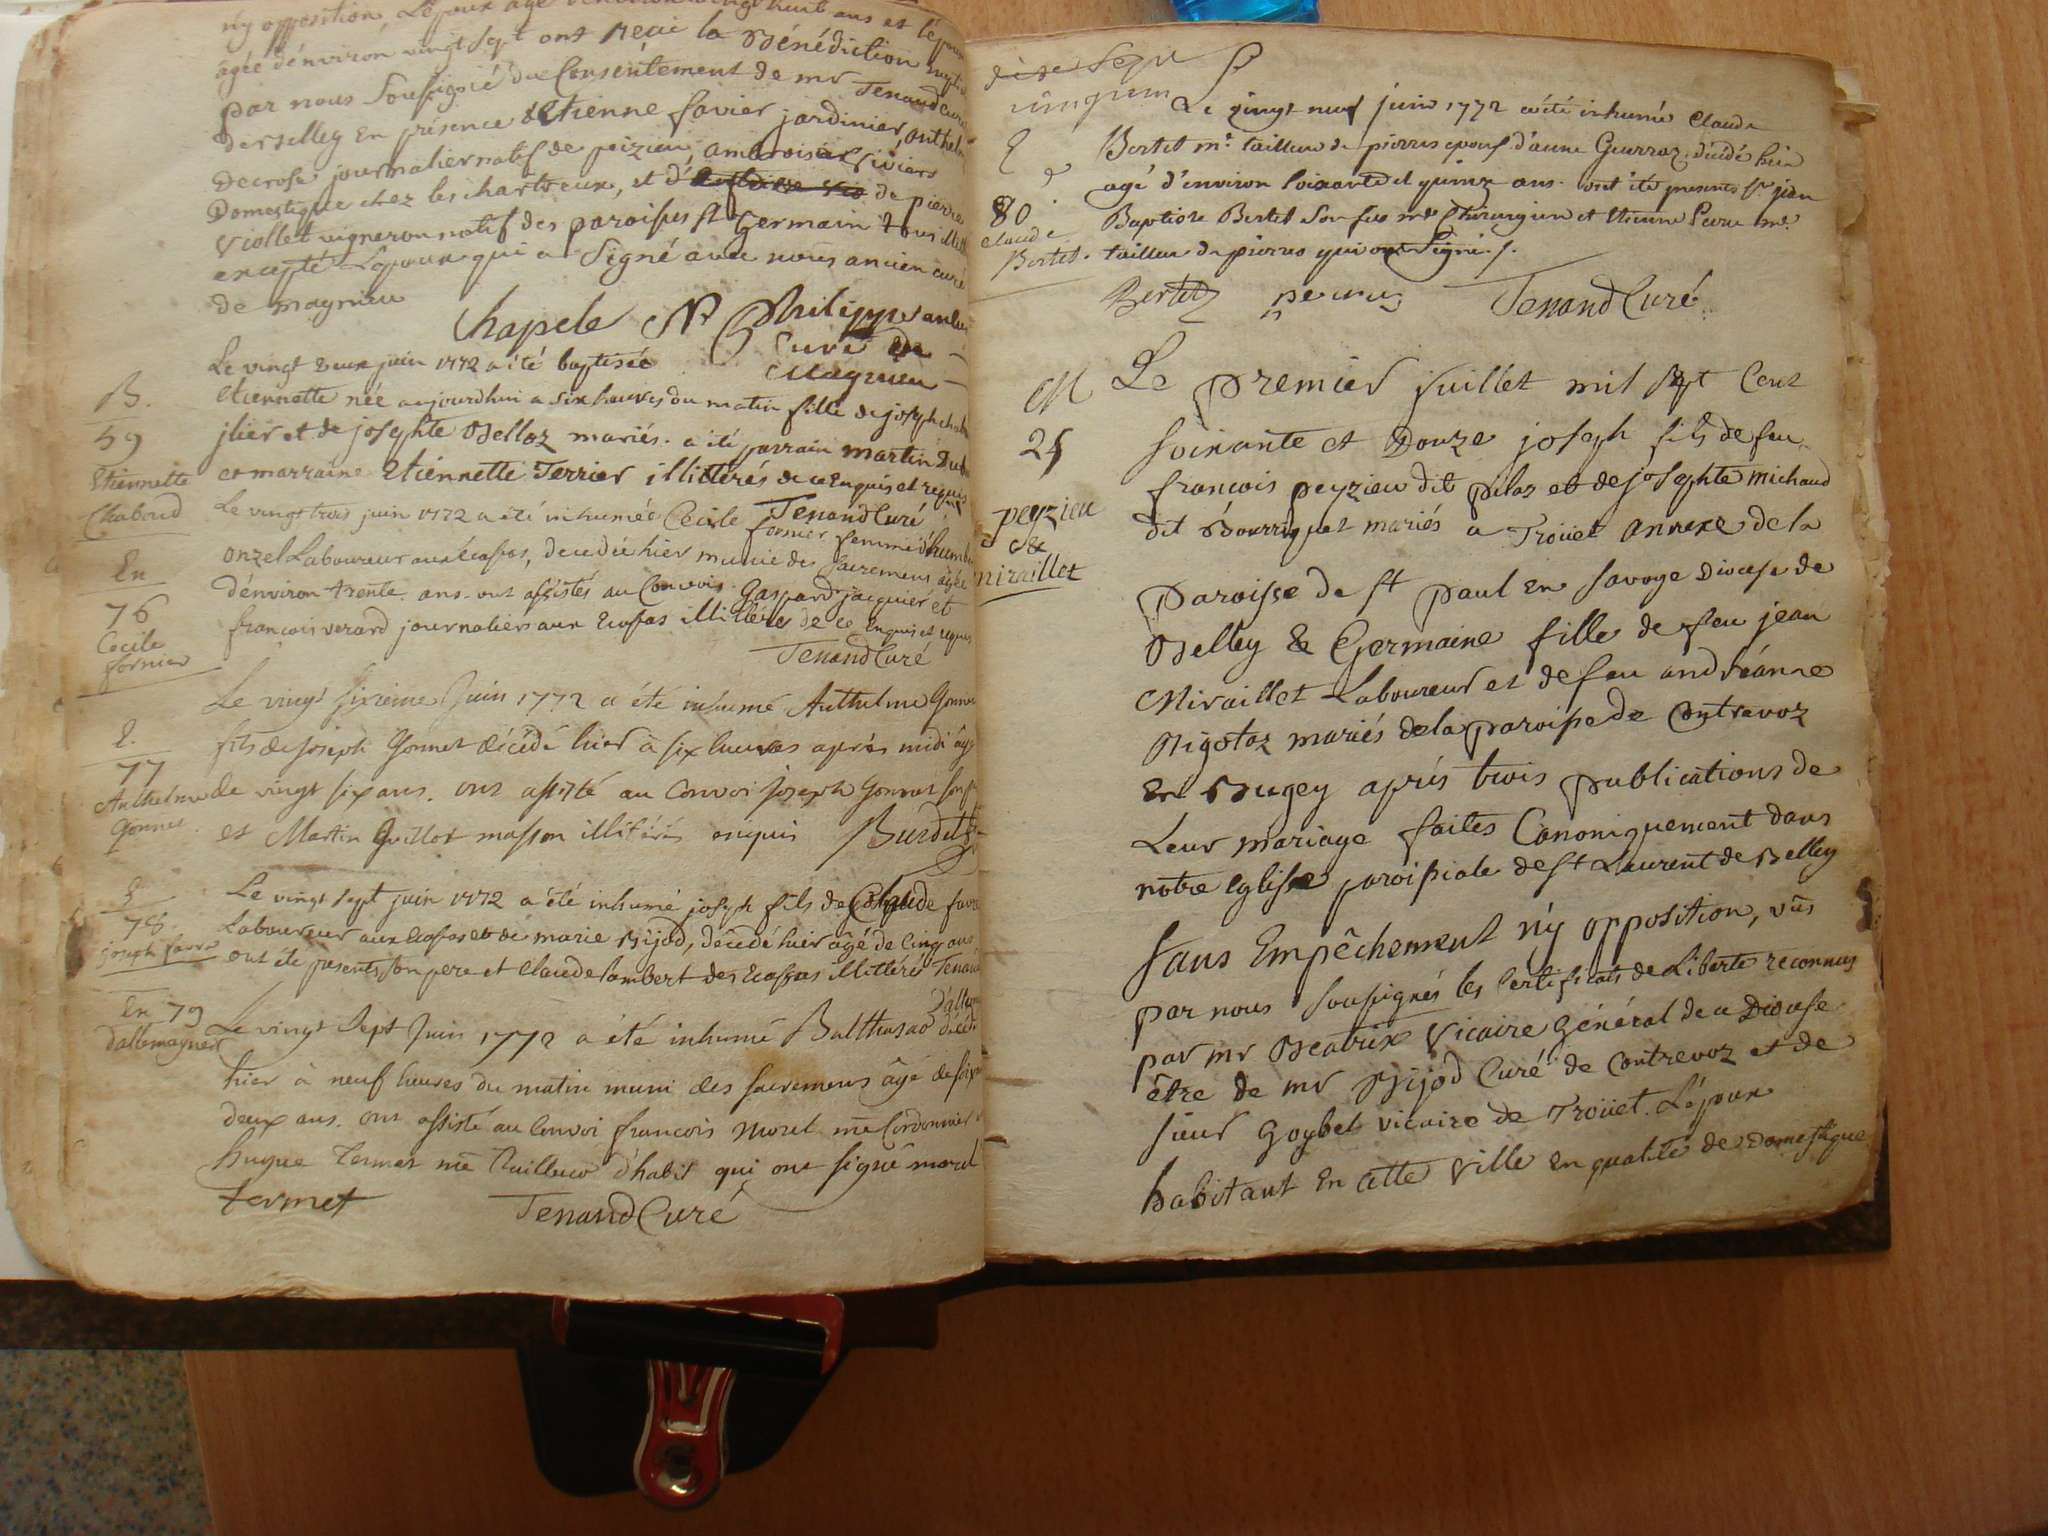 ny opposition, Lépoux agé d'environ vingt huit ans et lépouse
agée d'environ vingt sept ont reçu la Bénédiction
par nous soussigné du Consentement de mr Tenand Curé
de Belley En présence d'Etienne favier jardinier,
Decrose journalier natif de peizieu, ambroise
Domestique chez les chartreux, et de pierre
Viollet vigneron natif des paroisses st Germain
excepté Lépoux qui a Signé avec nous ancien curé
de magnieu
Chapele
Philippe
Curé de
Magnieu
B.
59
Etiennette
Chaboud
Le vingt deux juin 1772 a été baptisée
Etiennette née aujourdhui a six heures du matin fille de joseph
et de josephte Belloz mariés. a été parrain martin
et marraine Etiennette Terrier illitérés de ce Enquis et requis
Tenand Curé
En
76
Cecile
fornier
Le vingt trois juin 1772 a été inhumée Cecile
fornier femme d'humbert
onzel Laboureur aux Ecassas, decedée hier munie des sacremens agée
d'environ trente ans. ont assistés au Convois Gaspard jacquier et
francois verard journaliers aux Ecassas illitérés de ce Enquis et requis
Tenand Curé
E.
77
Anthelme
Gonnet
Le vingt sixieme Juin 1772 a été inhumé Anthelme Gonnet
fils de Joseph Gonnet décédé hier à six heures après midi âgé
de vingt six ans. ont assisté au Convoi Joseph Gonnet son
et Martin Guillot masson illitérés enquis Burdet
E
78
joseph favre
Le vingt sept juin 1772 a été inhumé joseph fils de Claude
Laboureur aux Ecassas et de marie Bijod, décédé hier âgé de Cinq ans
ont été presents son pere et Claude Lambert des Ecassas illittérés Tenand
En 79
Dallemagne
Le vingt Sept Juin 1772 a été inhumé Balthasar
hier à neuf heures du matin muni des sacremens âgé de
deux ans. ont assisté au Convoi francois Morel me Cordonnier
hugue termet me Tailleur d'habit qui ont signé morel
termet
Tenand Curé
E
80
Claude
Bertet.
Le vingt neuf juin 1772 a été inhumé Claude
Bertet me tailleur de pierres epoux d'anne Gourraz, décédé hier
agé d'environ soixante et quinze ans. ont été presents Sr jean
Baptiste Bertet son fils me Chirurgien et Etienne me
tailleur de pierres qui ont Signé.
Bertet
Tenand Curé
M
25
peyzieu
&
miraillet
Le premier Juillet mil sept Cent
soixante et Douze joseph fils de feu
francois peyzieu dit pilaz et de josephte michaud
dit Bourriquet mariés a Troüet annexe de la
paroisse de st paul En Savoye Diocese de
Belley & Germaine fille de feu jean
Miraillet Laboureur et de feu andréanne
Rigotaz mariés de la paroisse de Contrevoz
En Bugey aprés trois publications de
Leur mariage faites Canoniquement dans
notre eglise paroissiale de st Laurent de Belley
sans Empêchement n'y opposition, vûs
par nous soussignés les Certificats de Liberté reconnus
par mr Beatrix Vicaire Général de ce Diocese
être de mr Bijod Curé de Contrevoz et de
sieur Goybet vicaire de Troüet. L'époux
habitant En cette ville En qualité de Domestique